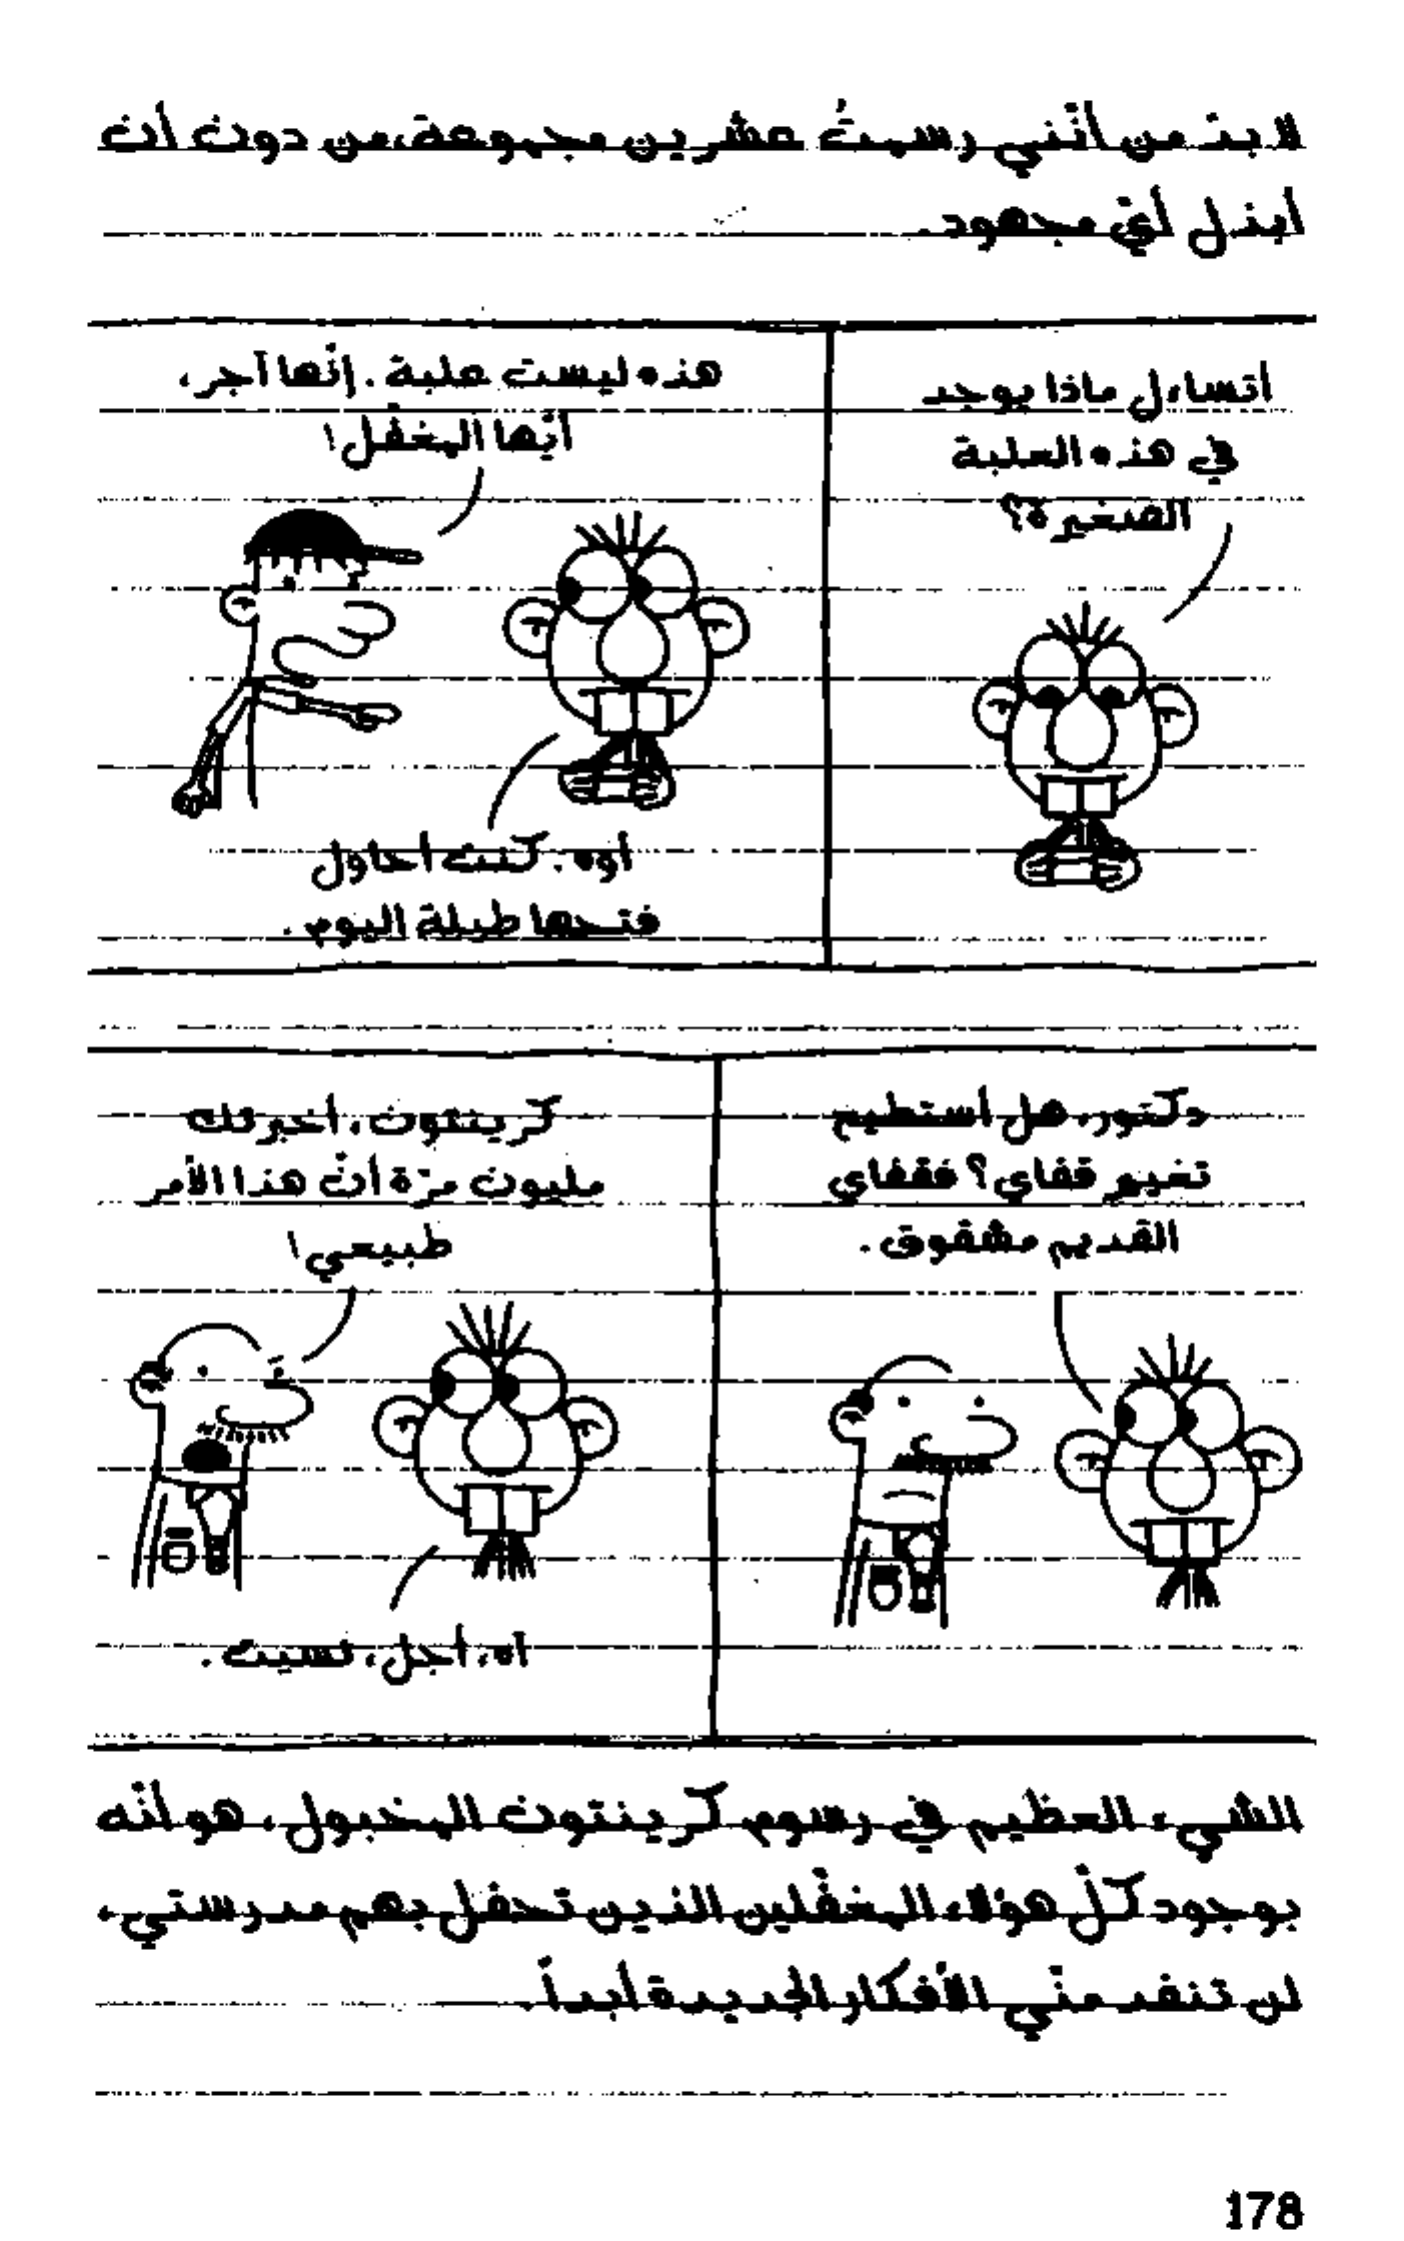 لا بدّ من أنّني رسمتُ عشرين مجموعة، من دون أن
أبذل أيّ مجهود.
أتساءل ماذا يوجد
في هذه العلبة
الصغيرة؟
هذه ليست علبة. إنّها آجر،
أيّها المغفّل!
أوه. كنت أحاول
فتحها طيلة اليوم.
دكتور، هل أستطيع
تغيير قفاي؟ فقفاي
القديم مشقوق.
كرينتون، أخبرتك
مليون مرّة أنّ هذا الأمر
طبيعي!
آه، أجل، نسيت.
الشيء العظيم في رسوم كرينتون المخبول، هو أنّه
بوجود كلّ هؤلاء المغفّلين الذين تحفل بهم مدرستي،
لن تنفد منّي الأفكار الجديدة أبداً.
178